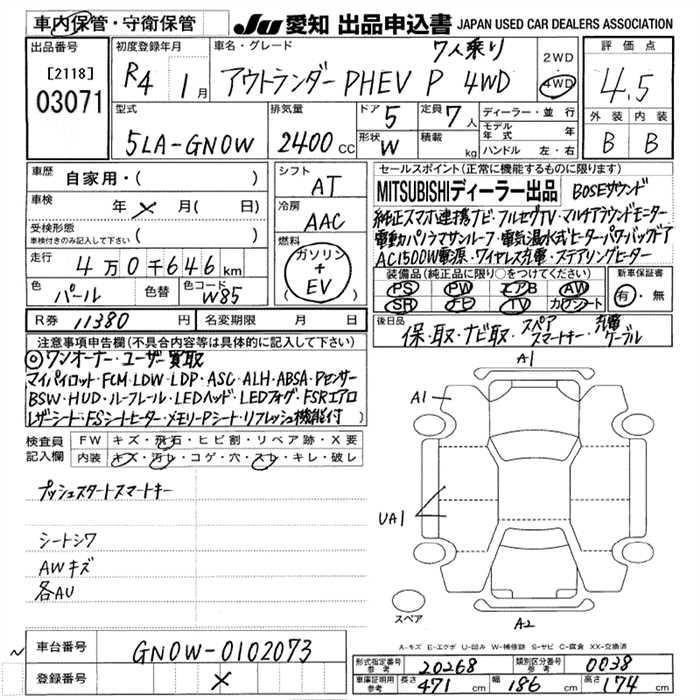 車内保管・守衛保管
JU 愛知 出品申込書 JAPAN USED CAR DEALERS ASSOCIATION
出品番号
[2118]
03071
初度登録年月
R4 1月
車名・グレード
7人乗り
アウトランダーPHEV P 4WD
2WD
4WD
評価点
4.5
外装 内装
B B
型式
5LA-GN0W
排気量
2400 CC
ドア 5
形状 W
定員 7人
積載 kg
ディーラー・並行
モデル年式 年
ハンドル 左・右
車歴 自家用・( )
車検 年 × 月( 日)
受検形態
車検付きのみ記入して下さい ( )
走行 4万0千646km
色 パール
色替
色コード W85
シフト
AT
冷房
AAC
燃料
ガソリン
+
EV
セールスポイント(正常に機能するものに限ります)
MITSUBISHIディーラー出品 BOSEサウンド
純正スマホ連携ナビ・フルセグTV・マルチアラウンドモニター
電動パノラマサンルーフ・電気温水式ヒーター・パワーバックドア
AC1500W電源・ワイヤレス充電・ステアリングヒーター
装備品(純正品に限り○をつけてください)
PS PW エアB AW
SR ナビ TV カワシート
新車保証書
有・無
R券 11380 円
名変期限 月 日
後日品
保・取・ナビ取・スペアスマートキー・充電ケーブル
注意事項申告欄(不具合内容等は具体的に記入して下さい)
◎ワンオーナー・ユーザー買取
マイパイロット・FCM・LDW・LDP・ASC・ALH・ABSA・Pセンサー
BSW・HUD・ルーフレール・LEDヘッド・LEDフォグ・FSRエアロ
レザーシート・FSシートヒーター・メモリーPシート・リフレッシュ機能付
検査員記入欄
FW キズ・飛石・ヒビ割・リペア跡・X要
内装 キズ・汚レ・コゲ・穴・スレ・キレ・破レ
プッシュスタートスマートキー
シートシワ
AWキズ
各AU
A1
A1
UA1
スペア
A2
A-キズ E-エクボ U-凹み W-補修跡 S-サビ C-腐食 XX-交換済
車台番号 GN0W-0102073
登録番号 ×
形式指定番号 参考 20268
類別区分番号 参考 0038
車庫証明用 参考 長さ 471 cm 幅 186 cm 高さ 174 cm